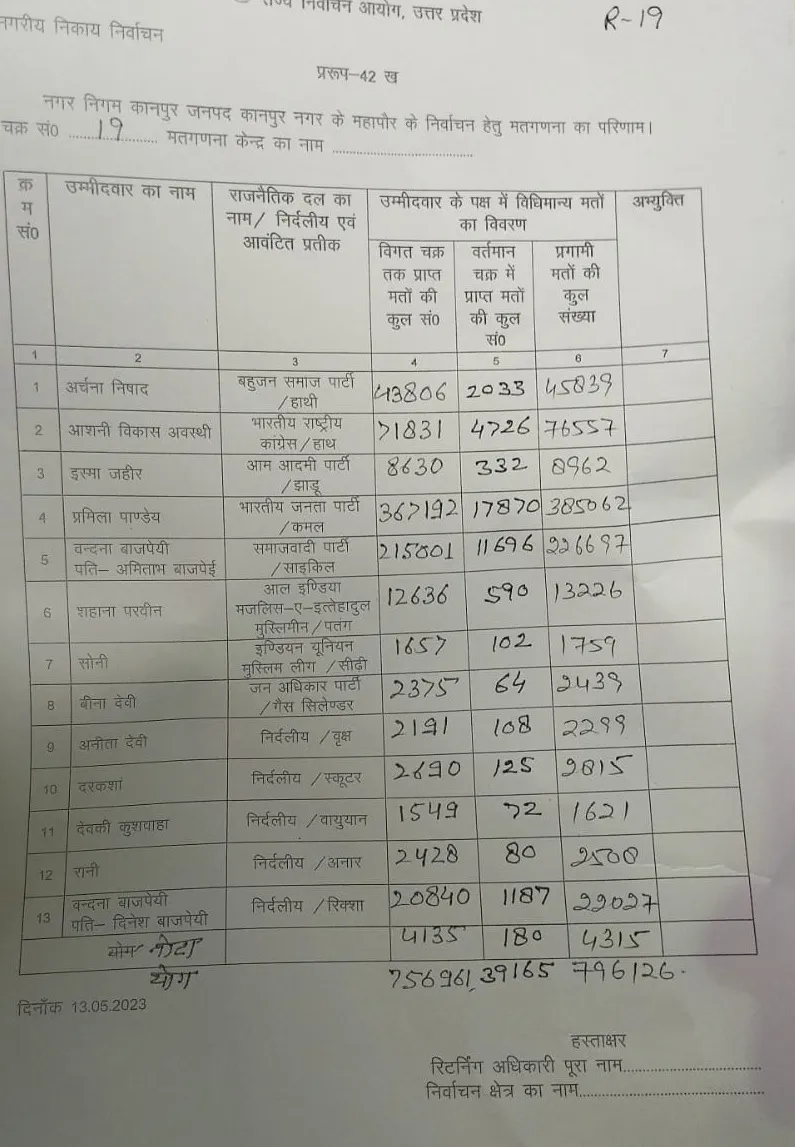 राज्य निर्वाचन आयोग, उत्तर प्रदेश
R-19
नगरीय निकाय निर्वाचन
प्ररूप-42 ख
नगर निगम कानपुर जनपद कानपुर नगर के महापौर के निर्वाचन हेतु मतगणना का परिणाम।
चक्र सं० ....19.... मतगणना केन्द्र का नाम ........................
क्रम सं० उम्मीदवार का नाम राजनैतिक दल का नाम/ निर्दलीय एवं आवंटित प्रतीक उम्मीदवार के पक्ष में विधिमान्य मतों का विवरण अभ्युक्ति
विगत चक्र तक प्राप्त मतों की कुल सं० वर्तमान चक्र में प्राप्त मतों की कुल सं० प्रगामी मतों की कुल संख्या
1 2 3 4 5 6 7
1 अर्चना निषाद बहुजन समाज पार्टी /हाथी 43806 2033 45839
2 आशनी विकास अवस्थी भारतीय राष्ट्रीय कांग्रेस/हाथ 71831 4726 76557
3 इस्मा जहीर आम आदमी पार्टी /झाडू 8630 332 8962
4 प्रमिला पाण्डेय भारतीय जनता पार्टी /कमल 367192 17870 385062
5 वन्दना बाजपेयी पति- अमिताभ बाजपेई समाजवादी पार्टी /साइकिल 215001 11696 226697
6 शहाना परवीन आल इण्डिया मजलिस-ए-इत्तेहादुल मुस्लिमीन/पतंग 12636 590 13226
7 सोनी इण्डियन यूनियन मुस्लिम लीग /सीढ़ी 1657 102 1759
8 बीना देवी जन अधिकार पार्टी /गैस सिलेण्डर 2375 64 2439
9 अनीता देवी निर्दलीय /वृक्ष 2191 108 2299
10 दरकशां निर्दलीय /स्कूटर 2690 125 2815
11 देवकी कुशवाहा निर्दलीय /वायुयान 1549 72 1621
12 रानी निर्दलीय /अनार 2428 80 2508
13 वन्दना बाजपेयी पति- दिनेश बाजपेयी निर्दलीय /रिक्शा 20840 1187 22027
योग नोटा 4135 180 4315
योग 756961 39165 796126
दिनाँक 13.05.2023
हस्ताक्षर
रिटर्निंग अधिकारी पूरा नाम........................
निर्वाचन क्षेत्र का नाम........................